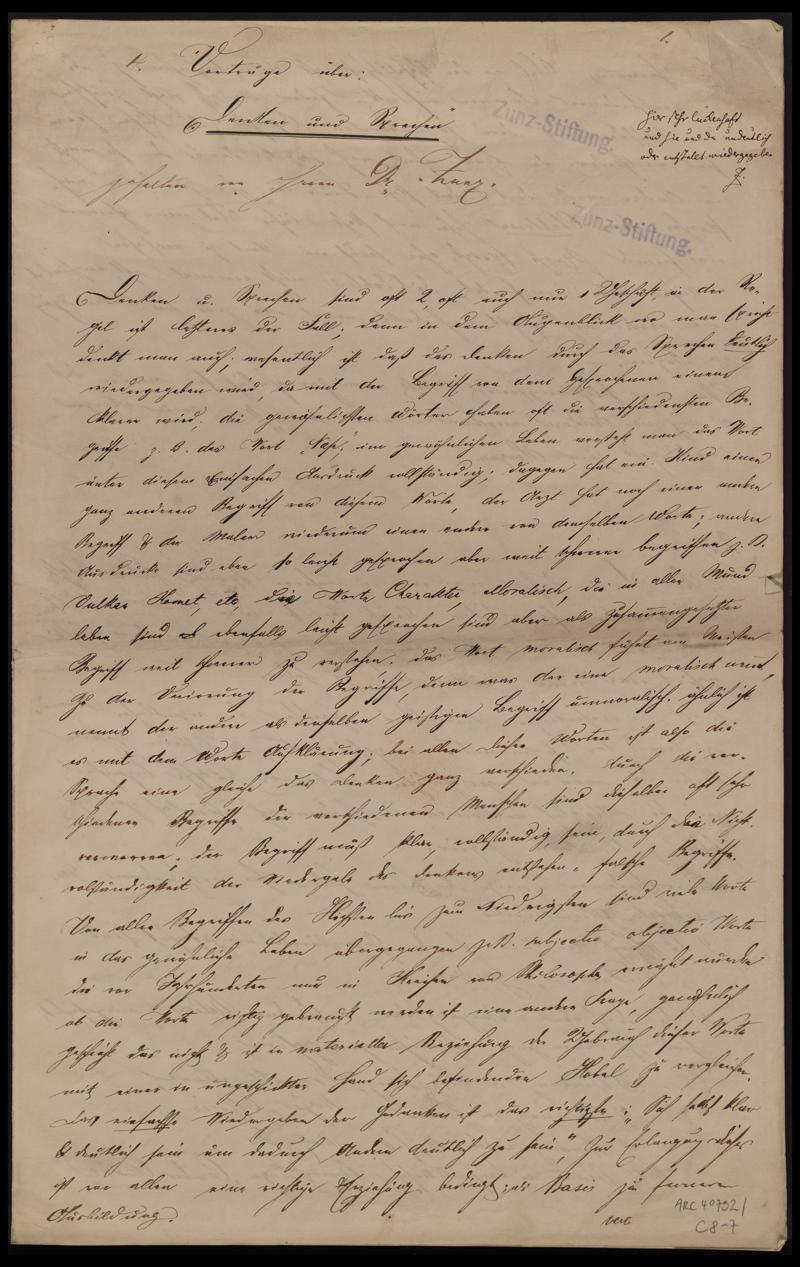 1.
4. Vorträge über:
"Denken und Sprechen"
gehalten von Herrn Dr. Zunz.
Zunz-Stiftung.
Zunz-Stiftung.
hier sehr lückenhaft
und hie und da undeutlich
oder entstellt wiedergegeben
Z.
Denken u. Sprechen sind oft 2, oft auch nur 1 Geschäft, in der Re-
gel ist letzteres der Fall; denn in dem Augenblick wo man spricht
denkt man auch; wesentlich ist daß das Denken durch das Sprechen deutlich
wiedergegeben wird, damit der Begriff von dem Gesprochenen einem
klarer wird. die gewöhnlichsten Wörter haben oft die verschiedensten Be-
griffe z. B. das Wort im gewöhnlichen Leben versteht man das Wort
unter diesem Einfachen Ausdruck vollständig; dagegen hat ein Kind einen
ganz anderen Begriff von diesem Worte, der Arzt hat noch einen andern
Begriff & der Maler wiederum einen andern von demselben Worte; andere
Ausdrücke sind eben so leicht gesprochen aber weit schwerer begriffen z. B.
Vulkan Komet, etc, die Worte Charakter, Moralisch, die in aller Mund
leben sind ebenfalls leicht gesprochen sind aber als zusammengesetzter
Begriff weit schwerer zu verstehen. das Wort moralisch führt am Meisten
zu der Verirrung der Begriffe, denn was der eine moralisch nennt,
nennt der andere als denselben geistigen Begriff unmoralisch. ähnlich ist
es mit dem Worte Aufklärung; bei allen diesen Worten ist also die
Sprache eine gleiche das Denken ganz verschieden. durch die ver-
schiedenen Begriffe der verschiedenen Menschen sind dieselben oft sehr
verworren; der Begriff muß klar, vollständig, sein, durch die Nicht-
vollständigkeit der Wiedergabe des Denkens entstehen falsche Begriffe.
Von allen Begriffen des Höchsten bis zum Niedrigsten sind viele Worte
in das gewöhnliche Leben übergegangen z. B. subjectiv objectiv Worte
die vor Jahrhunderten nur in Kreisen von Philosophen erwähnt wurden
ob die Worte richtig gebraucht werden ist eine andere Frage, gewöhnlich
geschieht das nicht & ist in materieller Beziehung der Gebrauch dieser Worte
mit einer in ungeschickter Hand sich befindenden Hobel zu vergleichen.
Das einfachste Wiedergeben der Gedanken ist das richtigste; "Sich selbst klar
& deutlich sein um dadurch Andern deutlich zu sein", Zur Erlangung dessen
ist vor allem eine richtige Erziehung bedingt; als Basis zu fernerer
Ausbildung.
vert
ARC 4°792/
C8-7